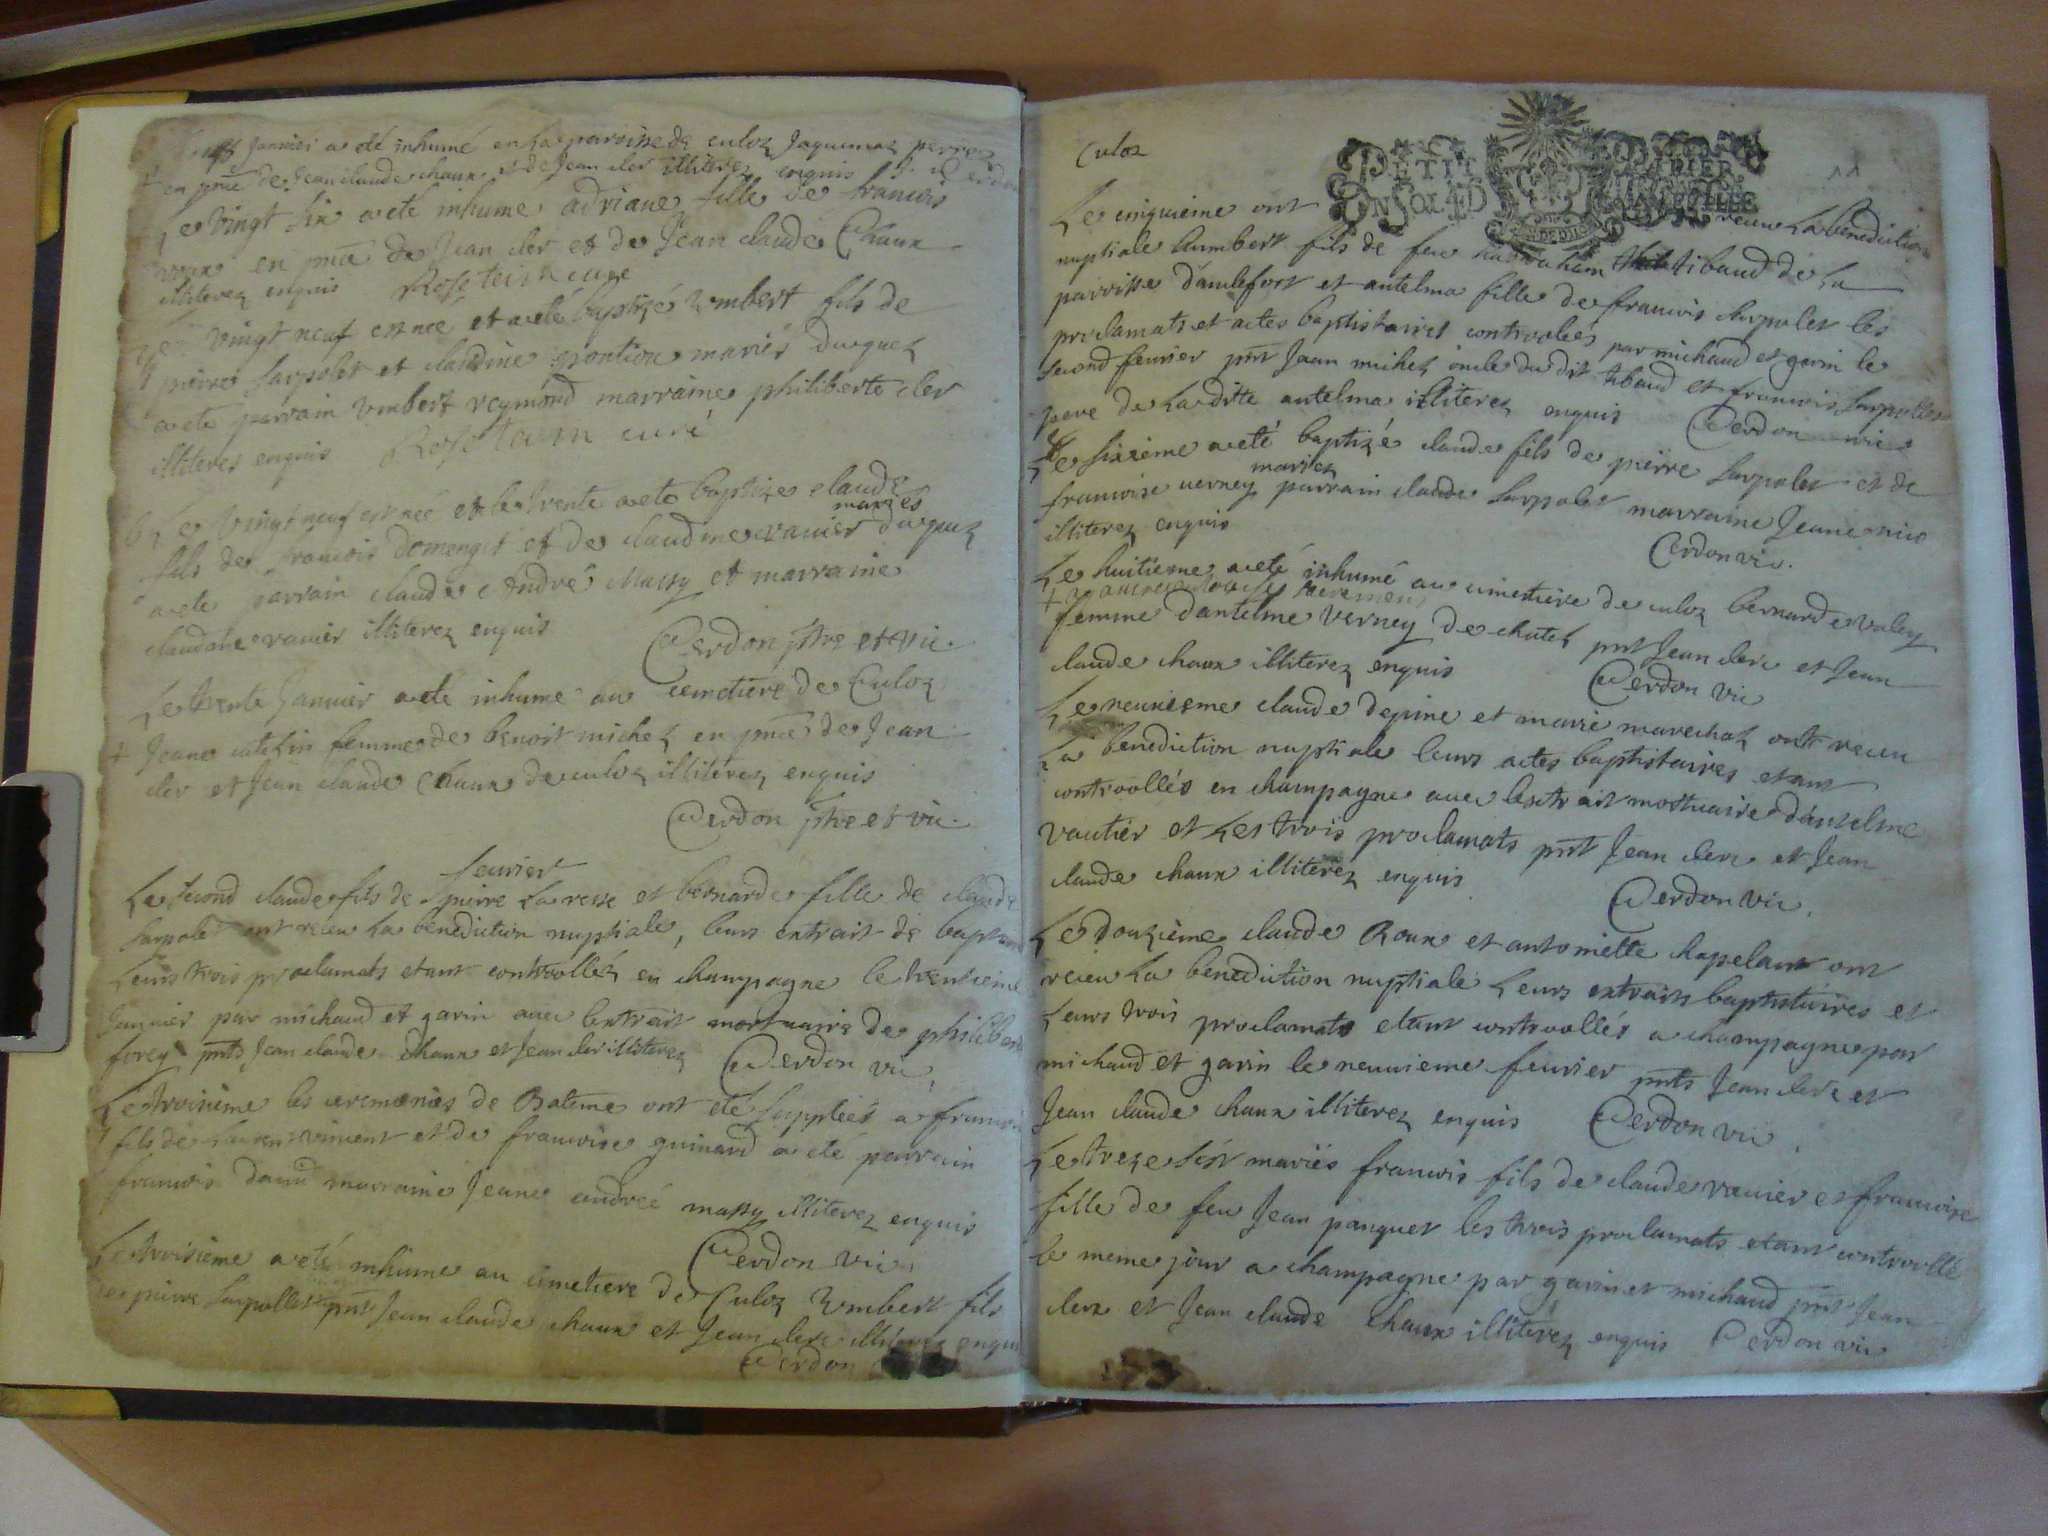 Janvier a été inhumé en la paroisse de culoz Jaquemaz
en pnce de Jean claude chaux et de Jean cler illiterez enquis
Le vingt six a eté inhume adriane fille de francois
en pnce de Jean cler et de Jean claude Chaux
illiterez enquis Rosetain curé
Le vingt neuf est neé et a eté baptizé Umbert fils de
pierre Serpolet et claudine pontion mariés
a eté parrain Umbert reymond marraine philiberte cler
illiteres enquis Rosetain curé
Le vingt neuf est neé et le trente a eté baptize claude
mariés
fils de francois Domenget et de claudine ravier
a eté parrain claude André Massy et marraine
claudine ravier illiterez enquis
Cerdon ptre et vic.
Le trente Janvier a eté inhumé au cemetiere de Culoz
+ Jeane catelin femme de benoit michel en pnce de Jean
cler et Jean claude Chaux de culoz illiterez enquis
Cerdon ptre et vic.
feurier
Le second claude fils de pierre La resse et bernarde fille de claude
Serpolet ont receu La benediction nuptiale, leurs extrait de
Leurs trois proclamats etant controollez en champagne le trentieme
Januier par michaud et garin avec lextrait mortuaire de
forey pnts Jean claude chaux et Jean cler illiterez Cerdon vic.
Le troisieme les ceremonies de Bateme ont eté Suppleés a
fils de Laurent vincent et de francoise guinard a eté parrain
francois David marraine Jeane andreé massy illiterez enquis
Cerdon vic.
Le troisieme a eté inhume au cimetiere de Culoz Umbert fils
de pierre Serpollet pnts Jean claude chaux et Jean clerc illiterez
Cerdon
Culoz
PETIT PAPIER
UN SOL 4 D LA FEUILLE
11
Le cinquieme ont receu La benediction
nuptiale humbert fils de feu tibaud de La
parroisse Danlefort et antelma fille de francois Serpolet les
proclamats et actes baptistaires controolés par michaud et garin le
second feurier pnt Jean michel oncle du dit tibaud et francois Serpollet
pere de La ditte antelma illiterez enquis Cerdon vic
Le sixieme a eté baptizé claude fils de pierre Serpolet et de
mariez
francoise verney parrain claude Serpolet marraine Jeane
illiterez enquis
Cerdon vic.
Le huitieme a eté inhumé au cimetiere de culoz bernarde valey
femme dantelme verney de chatel pnt Jean clerc et Jean
claude chaux illiterez enquis
Cerdon vic
Le neuuieme claude depine et marie marechal ont receu
La benediction nuptiale leurs actes baptistaires etant
controollés en champagne avec lextrait mortuaire danselme
vautier et Les trois proclamats pnt Jean clerc et Jean
claude chaux illiterez enquis
Cerdon vic.
Le douzieme claude Roux et antoinette chapelant ont
receu La benediction nuptiale Leurs extraits baptistaires et
Leurs trois proclamats etant controollés a champagne par
michaud et garin le neuuieme feurier pnts Jean clerc et
Jean claude chaux illiterez enquis Cerdon vic.
Le treze sont mariés francois fils de claude ravier et francoise
fille de feu Jean panquet les trois proclamats etant controollé
le meme jour a champagne par garin et michaud pnt Jean
clerc et Jean claude chaux illiterez enquis Cerdon vic